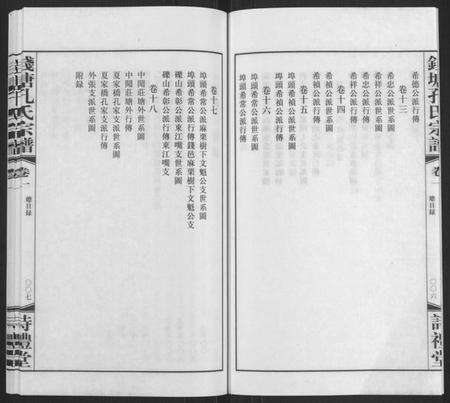 錢塘孔氏宗譜
卷一
總目錄
〇〇六
詩禮堂
希德公派行傳
卷十三
希忠公派世系圖
希祥公派世系圖
希忠公派行傳
希祥公派行傳
卷十四
希禎公派世系圖
希禎公派行傳
卷十五
埠頭希常公派世系圖
卷十六
埠頭希常公派行傳
卷十七
埠頭希常公派麻栗樹下文魁公支世系圖
埠頭希常公派行傳錢邑麻栗樹下文魁公支
礫山希彰公派東江嘴支世系圖
礫山希彰公派行傳東江嘴支
卷十八
中閘莊塘外世系圖
中閘莊塘外行傳
夏家橋孔家支派世系圖
夏家橋孔家支派行傳
外張支派世系圖
附錄
錢塘孔氏宗譜
卷一
總目錄
〇〇七
詩禮堂